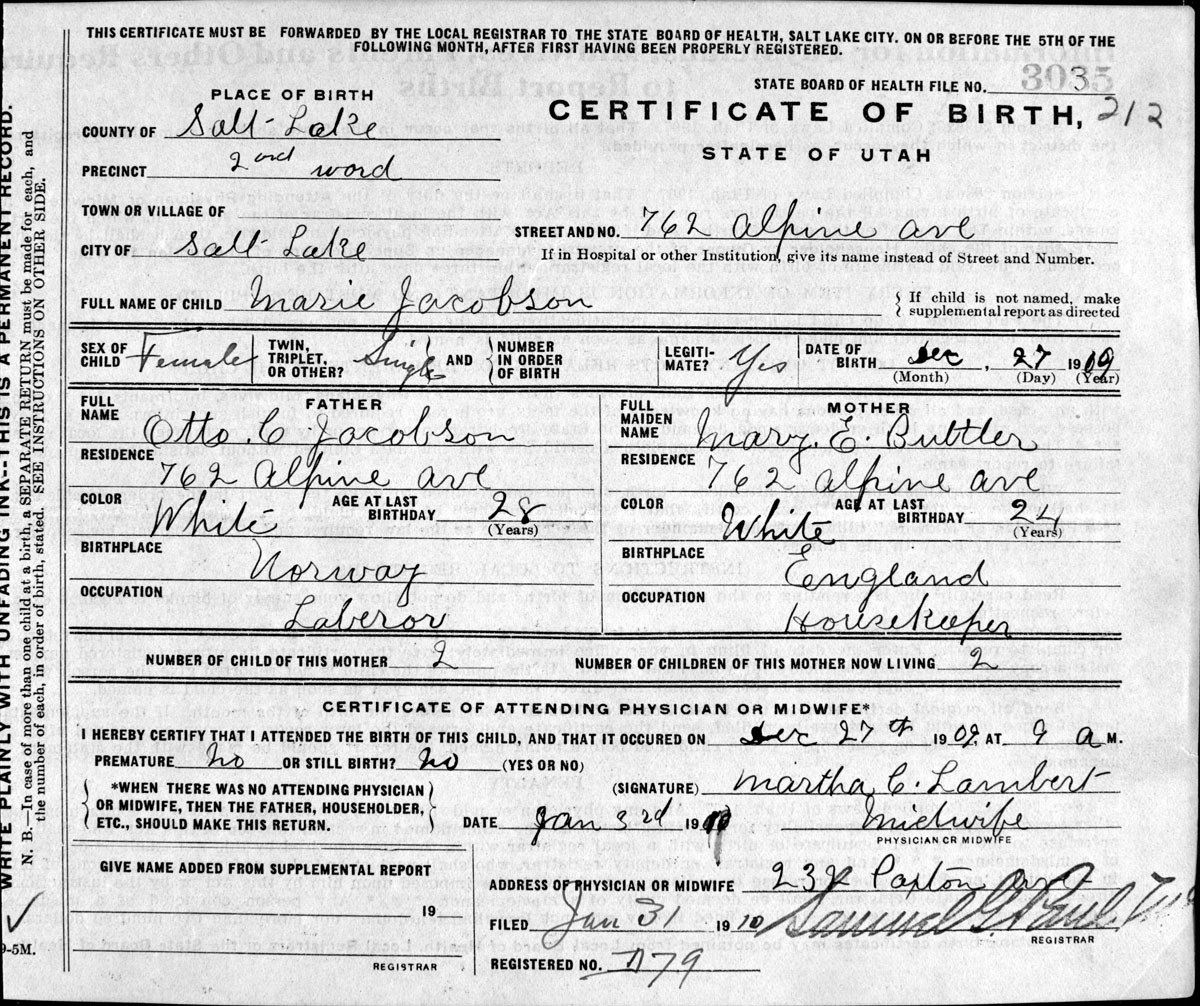 THIS CERTIFICATE MUST BE FORWARDED BY THE LOCAL REGISTRAR TO THE STATE BOARD OF HEALTH, SALT LAKE CITY. ON OR BEFORE THE 5TH OF THE
FOLLOWING MONTH, AFTER FIRST HAVING BEEN PROPERLY REGISTERED.
3035
STATE BOARD OF HEALTH FILE NO.
PLACE OF BIRTH
CERTIFICATE OF BIRTH, 212
STATE OF UTAH
COUNTY OF Salt Lake
PRECINCT 2ond word
TOWN OR VILLAGE OF
CITY OF Salt Lake
STREET AND NO. 762 Alpine ave
If in Hospital or other Institution, give its name instead of Street and Number.
FULL NAME OF CHILD Marie Jacobson
If child is not named, make
supplemental report as directed
SEX OF CHILD Female
TWIN, TRIPLET, OR OTHER? Single AND NUMBER IN ORDER OF BIRTH
LEGITIMATE? Yes
DATE OF BIRTH Dec, 27 1909
(Month) (Day) (Year)
FATHER
FULL NAME
Otto. C. Jacobson
RESIDENCE
762 Alpine ave
COLOR White AGE AT LAST BIRTHDAY 28 (Years)
BIRTHPLACE
Norway
OCCUPATION
Laberor
MOTHER
FULL MAIDEN NAME Mary. E. Buttler
RESIDENCE 762 Alpine ave
COLOR White AGE AT LAST BIRTHDAY 24 (Years)
BIRTHPLACE England
OCCUPATION
Housekeeper
NUMBER OF CHILD OF THIS MOTHER 2 NUMBER OF CHILDREN OF THIS MOTHER NOW LIVING 2
CERTIFICATE OF ATTENDING PHYSICIAN OR MIDWIFE*
I HEREBY CERTIFY THAT I ATTENDED THE BIRTH OF THIS CHILD, AND THAT IT OCCURED ON Dec 27th 1909, AT 9 a M.
PREMATURE No OR STILL BIRTH? No (YES OR NO)
*WHEN THERE WAS NO ATTENDING PHYSICIAN
OR MIDWIFE, THEN THE FATHER, HOUSEHOLDER,
ETC., SHOULD MAKE THIS RETURN.
(SIGNATURE) Martha C. Lambert
DATE Jan 3rd 19 Midwife
PHYSICIAN OR MIDWIFE
GIVE NAME ADDED FROM SUPPLEMENTAL REPORT
19
REGISTRAR
ADDRESS OF PHYSICIAN OR MIDWIFE Paxton ave
FILED Jan 3 1910 Samuel G. Paul
REGISTRAR
REGISTERED NO. 79
WRITE PLAINLY WITH UNFADING INK--THIS IS A PERMANENT RECORD.
N. B.—In case of more than one child at a birth, a SEPARATE RETURN must be made for each, and
the number of each, in order of birth, stated. SEE INSTRUCTIONS ON OTHER SIDE.
9-5M.